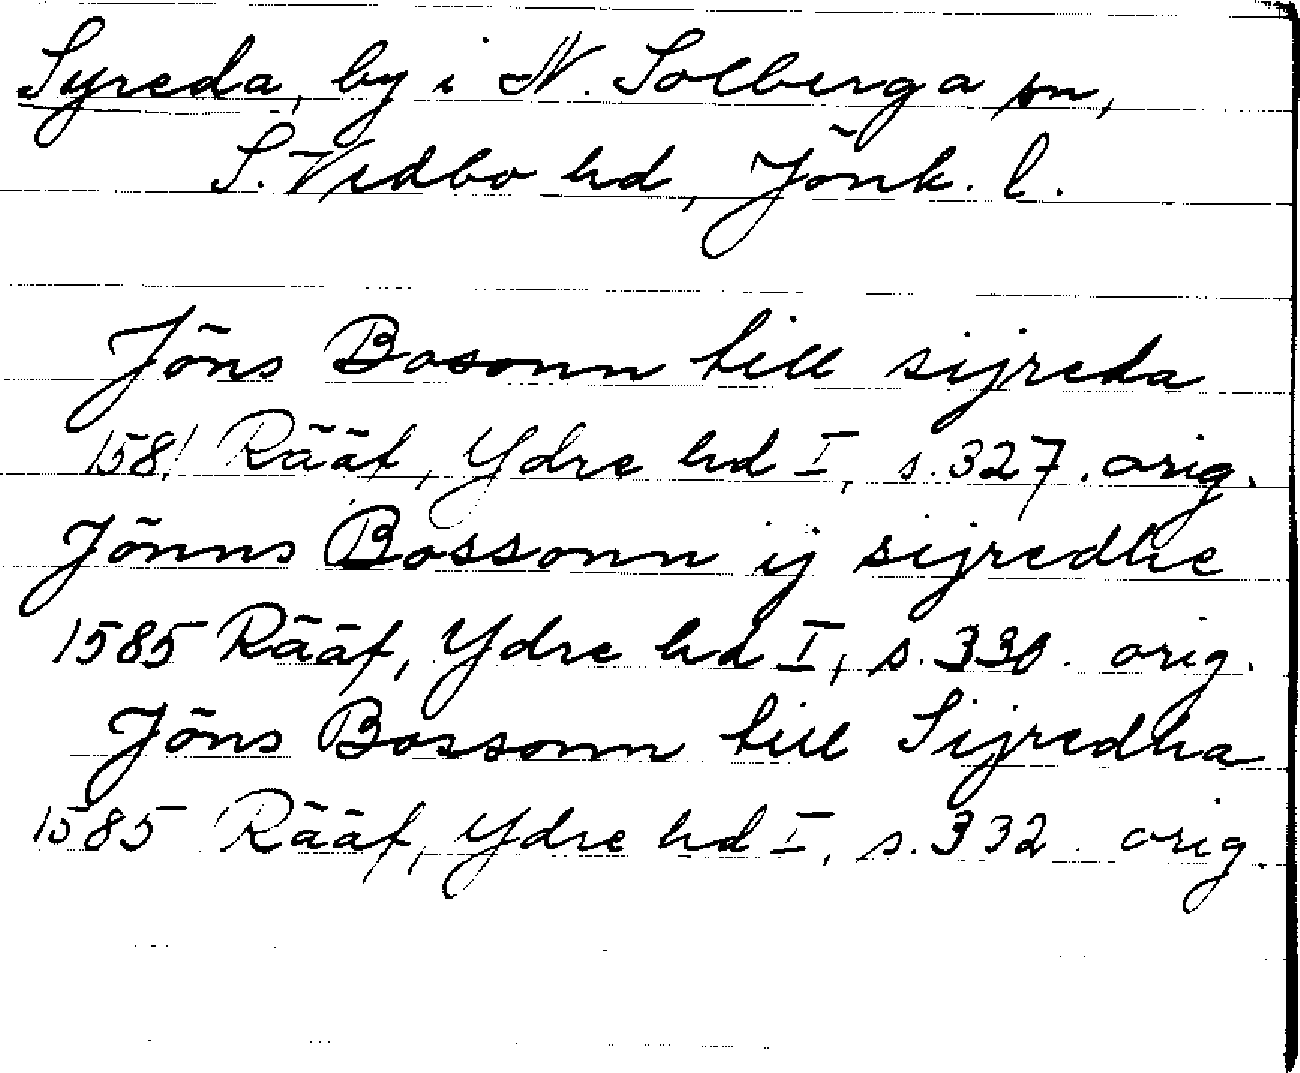 Syreda, by i N. Solberga sn,
S. Vedbo hd, Jönk. l.
Jöns Bosonn till sijreda
1581 Rääf, Ydre hd I, s. 327. orig.
Jönns Bossonn ij sijredhe
1585 Rääf, Ydre hd I, s. 330. orig.
Jöns Bossonn till Sijredha
1585 Rääf, Ydre hd I, s. 332. orig.